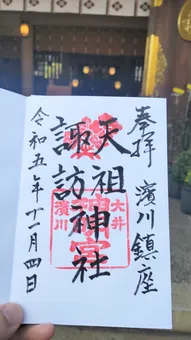 奉拝 濱川鎮座
天祖
諏訪
神社
大井
濱川
令和五年十一月四日